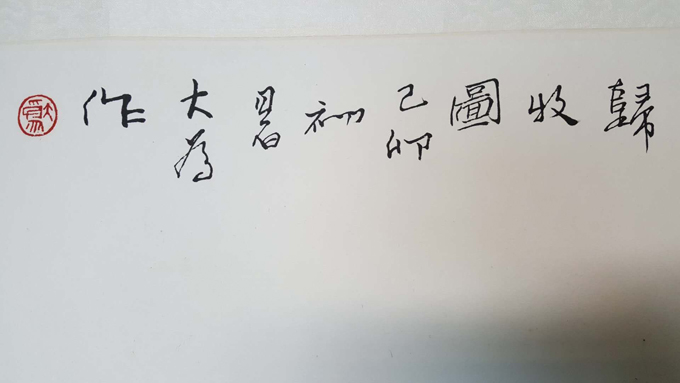 歸
牧
圖
己卯
初
暑
大為
作
大為